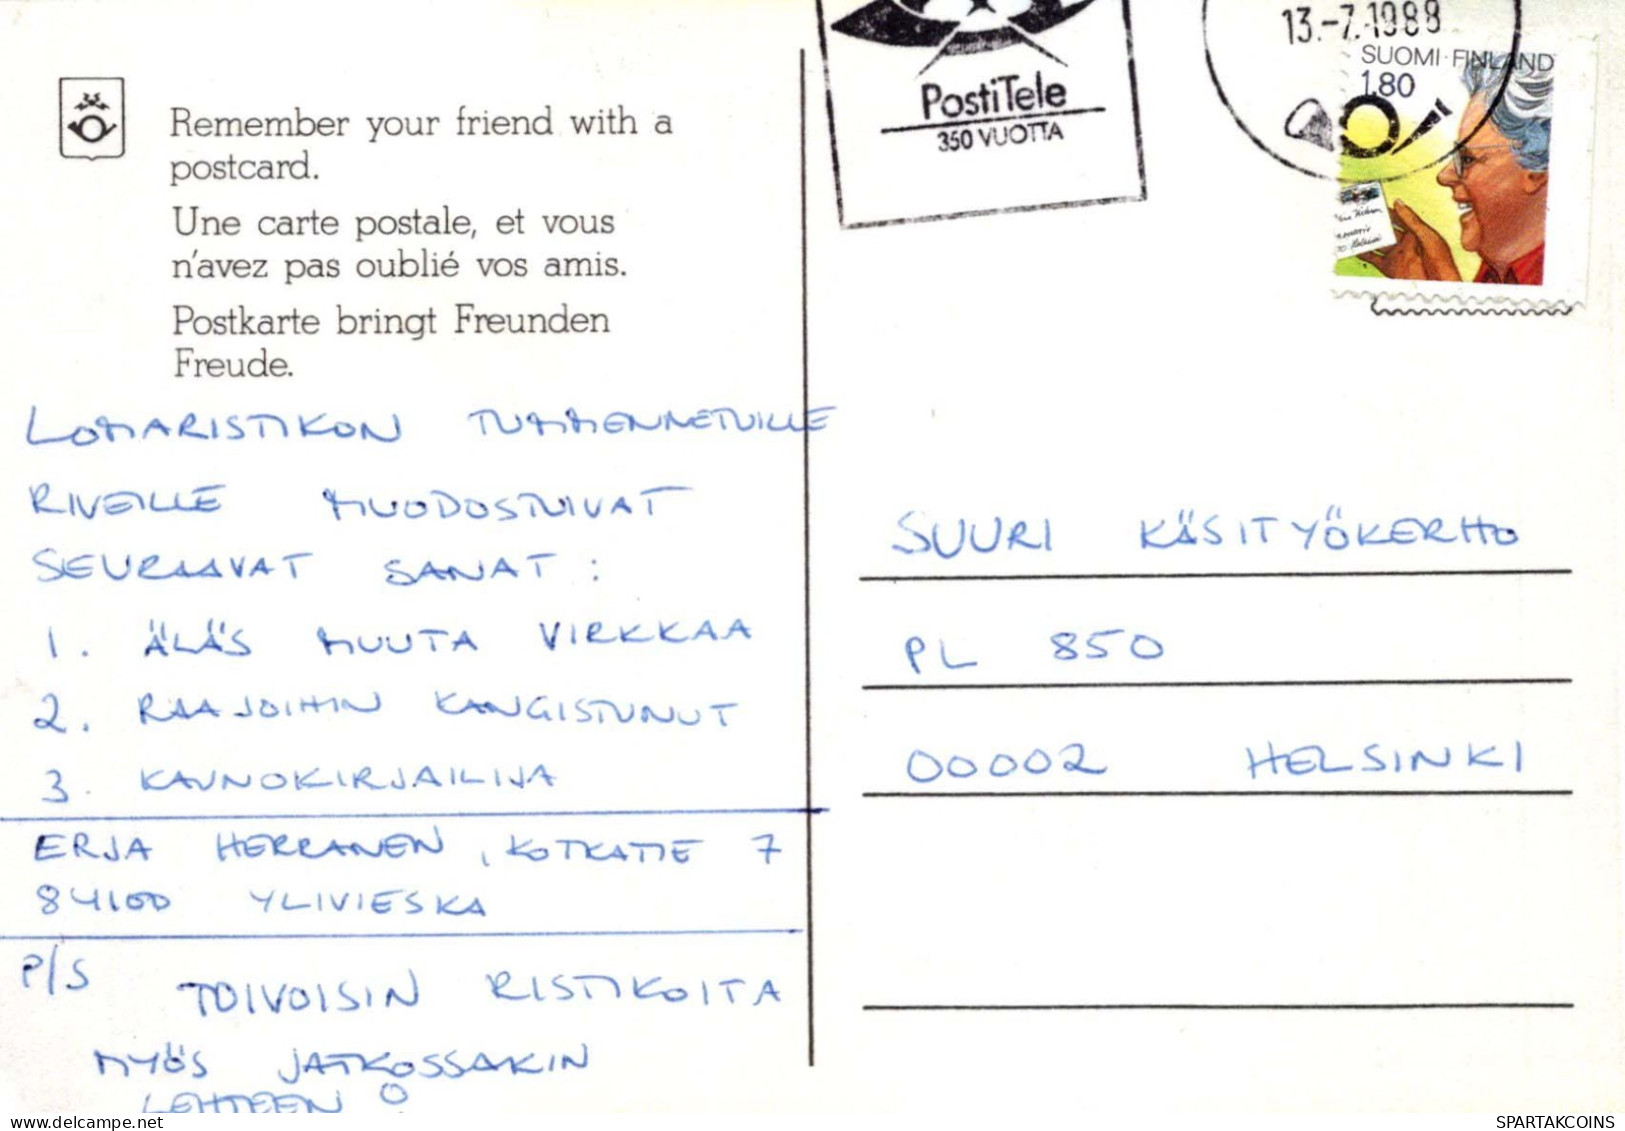 Remember your friend with a
postcard.
Une carte postale, et vous
n'avez pas oublié vos amis.
Postkarte bringt Freunden
Freude.
LOMARISTIKON TUMMENNETUILLE
RIVEILLE MUODOSTUIVAT
SEURAAVAT SANAT :
1. ÄLÄS MUUTA VIRKKAA
2. RAAJOIHIN KANGISTUNUT
3. KAUNOKIRJAILIJA
ERJA HERRANEN, KOTKATIE 7
84100 YLIVIESKA
P/S TOIVOISIN RISTIKOITA
MYÖS JATKOSSAKIN
LEHTEEN
PostiTele
350 VUOTTA
13.-7.1988
SUOMI·FINLAND
1,80
SUURI KÄSITYÖKERHO
PL 850
00002 HELSINKI
SPARTAKCOINS